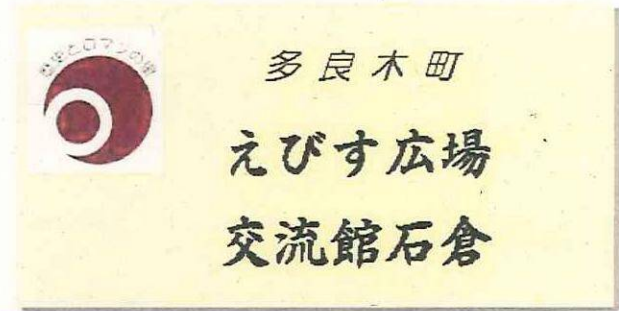 歴史とロマンの里
多良木町
えびす広場
交流館石倉